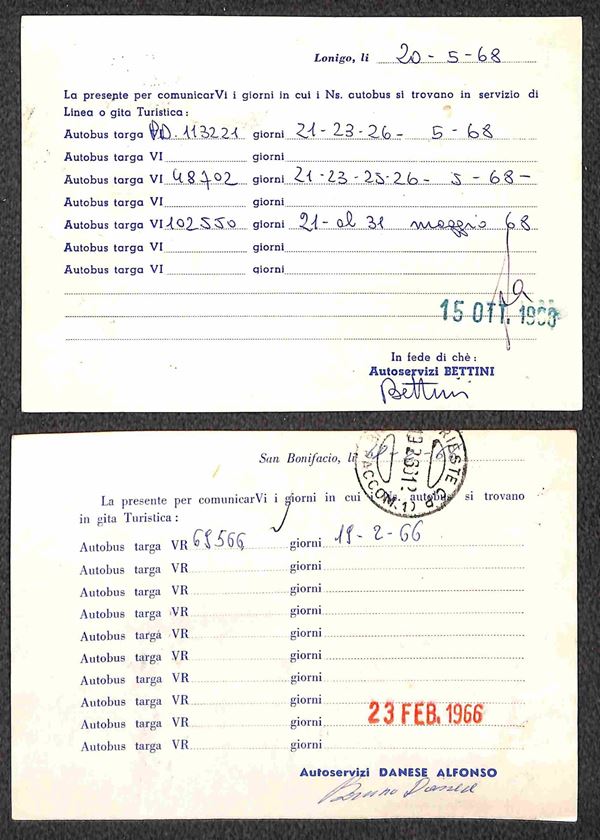 Lonigo, li 20-5-68
La presente per comunicarVi i giorni in cui i Ns. autobus si trovano in servizio di
Linea o gita Turistica:
Autobus targa PD. 113221 giorni 21-23-26- 5-68
Autobus targa VI giorni
Autobus targa VI 48702 giorni 21-23-25-26- 5-68-
Autobus targa VI giorni
Autobus targa VI 102550 giorni 21- al 31 maggio 68
Autobus targa VI giorni
Autobus targa VI giorni
15 OTT.
In fede di chè:
Autoservizi BETTINI
Bettini
San Bonifacio, li
TRIESTE
ACCOM. 1)
La presente per comunicarVi i giorni in cui i Ns. autobus si trovano
in gita Turistica:
Autobus targa VR 69566 giorni 19-2-66
Autobus targa VR giorni
Autobus targa VR giorni
Autobus targa VR giorni
Autobus targa VR giorni
Autobus targa VR giorni
Autobus targa VR giorni
Autobus targa VR giorni
Autobus targa VR giorni
Autobus targa VR giorni
23 FEB. 1966
Autoservizi DANESE ALFONSO
Bruno Danese